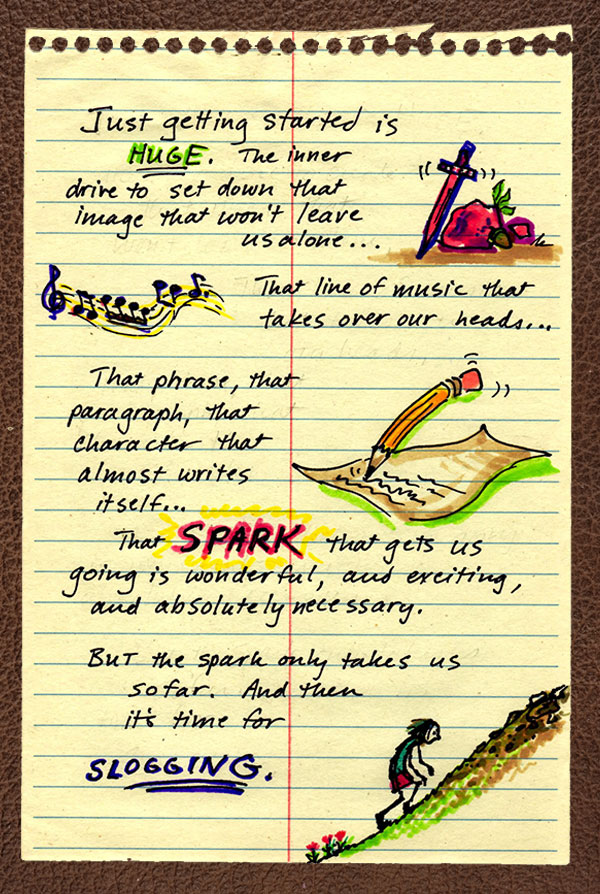 Just getting started is
HUGE. The inner
drive to set down that
image that won't leave
us alone...
That line of music that
takes over our heads...
That phrase, that
paragraph, that
character that
almost writes
itself...
That SPARK that gets us
going is wonderful, and exciting,
and absolutely necessary.
BUT the spark only takes us
so far. And then
it's time for
SLOGGING.